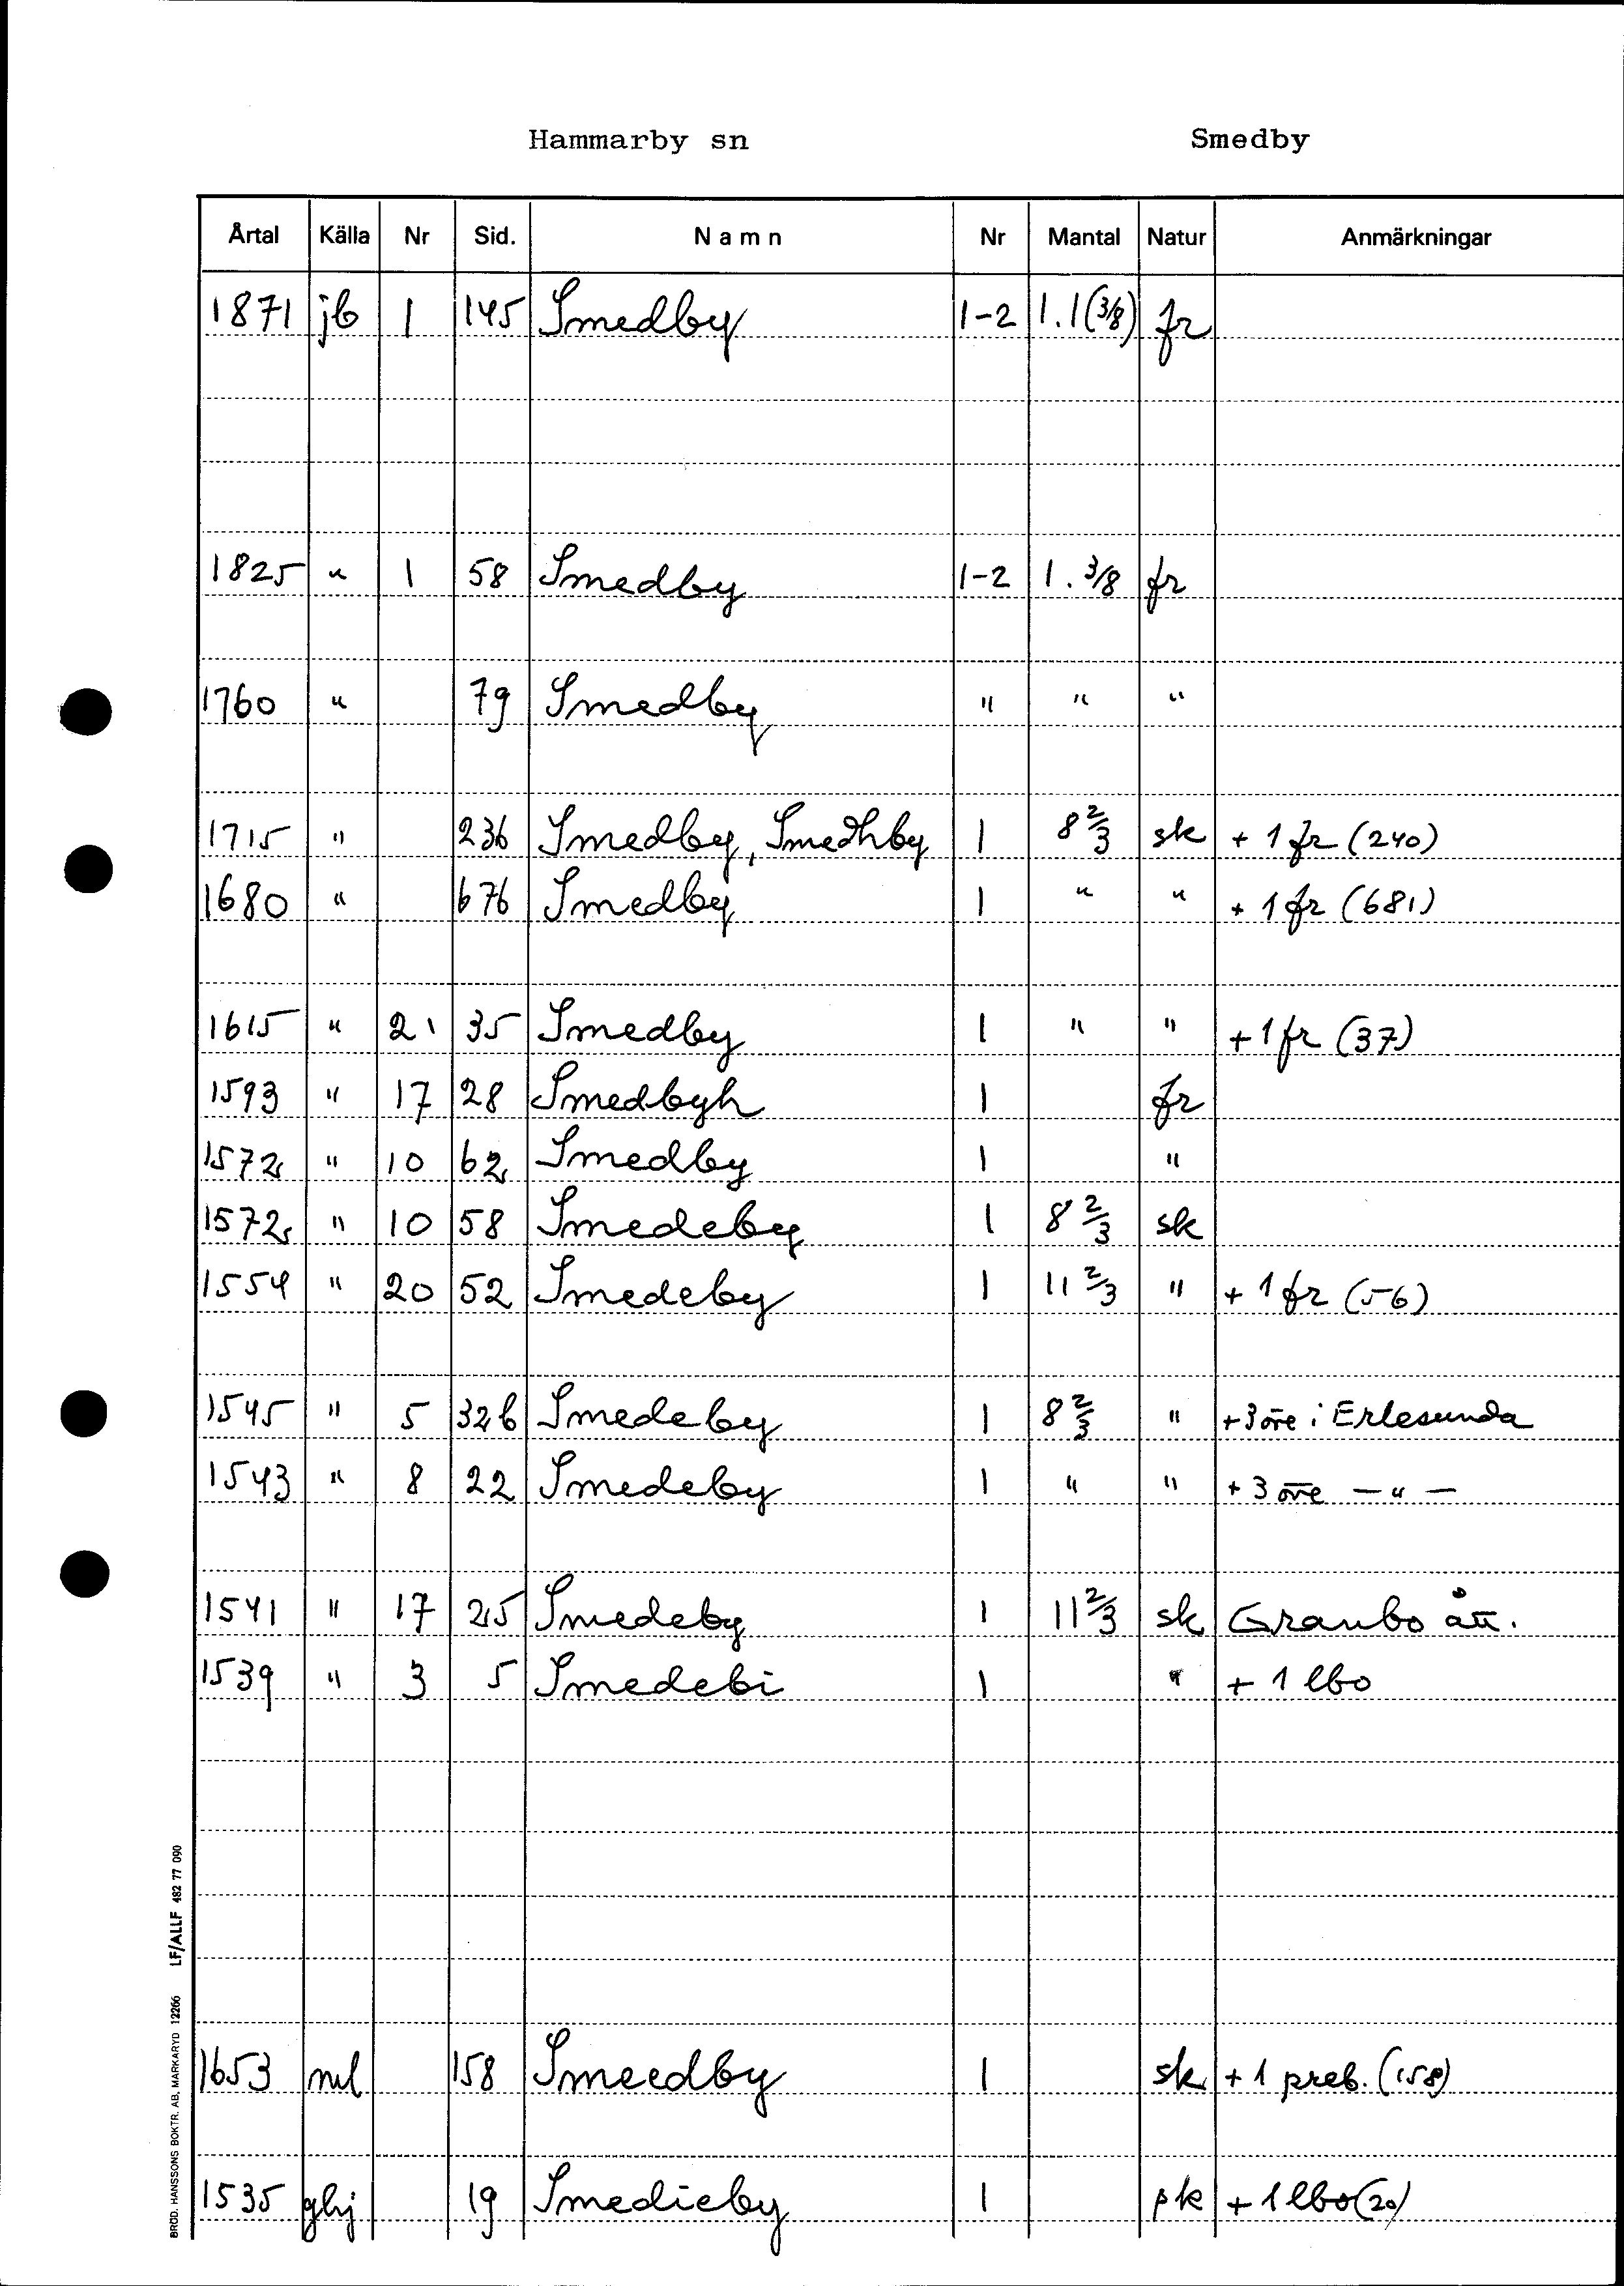 Hammarby sn Smedby
Årtal Källa Nr Sid. Namn Nr Mantal Natur Anmärkningar
1871 jb 1 145 Smedby 1-2 1.1(3/8) fr
1825 " 1 58 Smedby 1-2 1. 3/8 fr
1760 " 79 Smedby " " "
1715 " 236 Smedby, Smedhby 1 8 2/3 sk + 1 fr (240)
1680 " 676 Smedby 1 " " + 1 fr (681)
1615 " 21 35 Smedby 1 " " + 1 fr (37)
1593 " 17 28 Smedbyh 1 fr
1572 " 10 62 Smedby 1 "
1572 " 10 58 Smedeby 1 8 2/3 sk
1554 " 20 52 Smedeby 1 11 2/3 " + 1 fr (56)
1545 " 5 32b Smedeby 1 8 2/3 " + 3 öre i Erlesunda
1543 " 8 22 Smedeby 1 " " + 3 öre — " —
1541 " 17 25 Smedeby 1 11 2/3 sk Granbo ått.
1539 " 3 5 Smedebi 1 " + 1 lbo
1653 ml 158 Smeedby 1 sk + 1 preb. (158)
1535 ghj 19 Smedieby 1 sk + 1 lbo (20)
BRÖD. HANSSONS BOKTR. AB, MARKARYD 12266 LF/ALLF 482 77 090